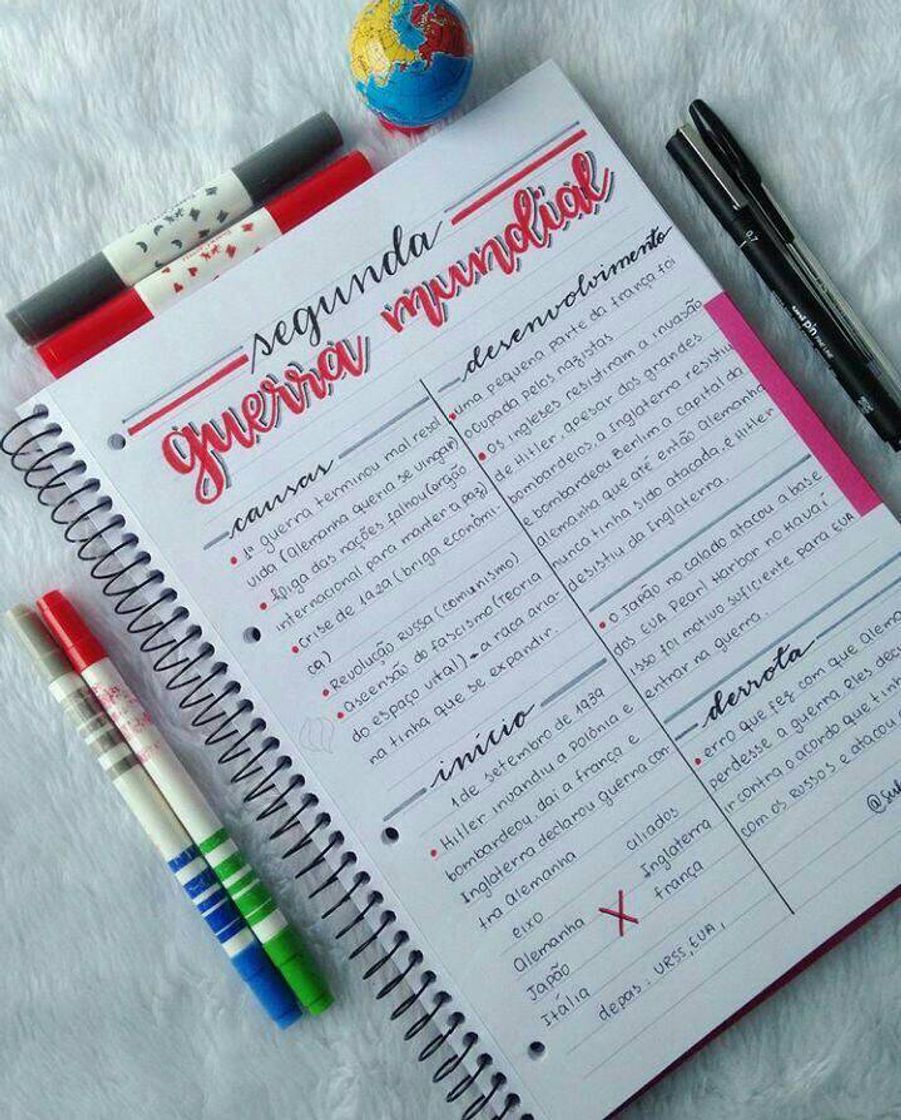 segunda
guerra mundial
causas
• 1ª guerra terminou mal resol
vida (Alemanha queria se vingar)
• Liga das nações falhou (orgão
internacional para manter a paz)
• crise de 1929 (briga econômi-
ca)
• Revolução Russa (comunismo)
• ascensão do fascismo (teoria
do espaço vital) → a raça aria-
na tinha que se expandir.
início
1 de setembro de 1939
• Hitler invandiu a Polônia e
bombardeou, daí a frança e
Inglaterra declarou guerra con-
tra alemanha
eixo aliados
Alemanha X Inglaterra
Japão frança
Itália
depois: URSS, EUA,
desenvolvimento
• uma pequena parte da frança foi
ocupada pelos nazistas
• os ingleses resistiram a invasão
de Hitler, apesar dos grandes
bombardeios, a Inglaterra resistiu
e bombardeou Berlim a capital da
alemanha que até então Alemanha
nunca tinha sido atacada, e Hitler
desistiu da Inglaterra.
• o Japão no calado atacou a base
dos EUA Pearl Harbor no Havaí
isso foi motivo suficiente para EUA
entrar na guerra.
derrota
• erro que fez com que
perdesse a guerra, eles
ir contra o acordo que
com os Russos e atacou
0.7
uni pin
fine line